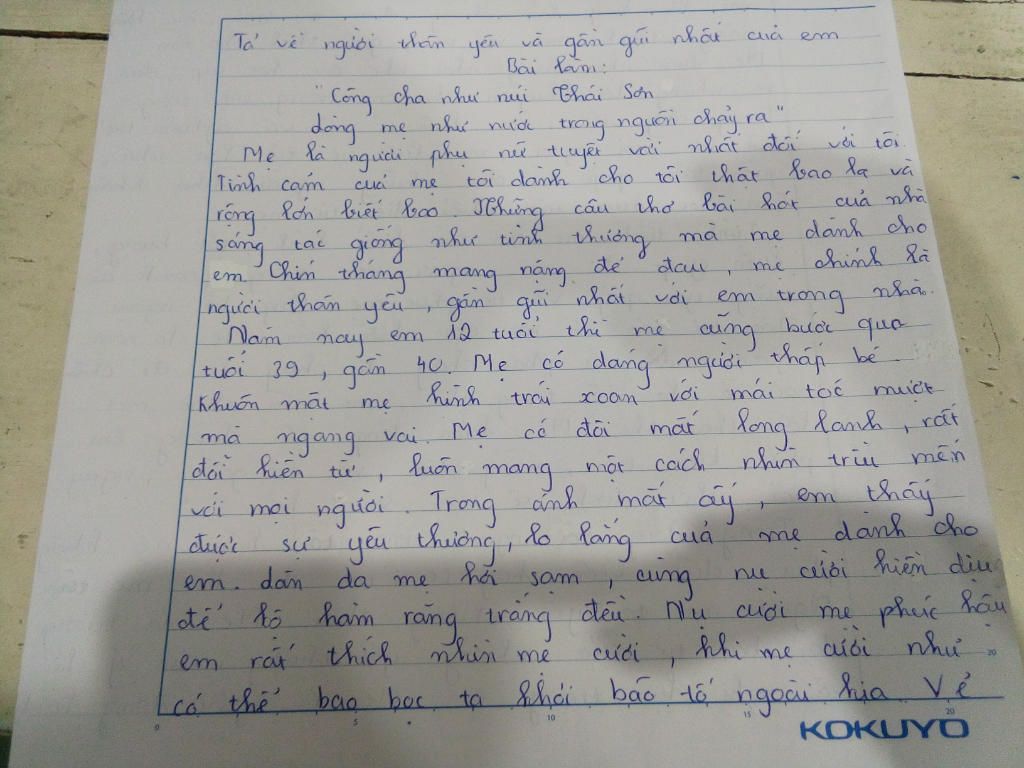 Tả về người thân yêu và gần gũi nhất của em
Bài làm:
"Công cha như núi Thái Sơn
dòng mẹ như nước trong nguồn chảy ra"
Mẹ là người phụ nữ tuyệt vời nhất đối với tôi.
Tình cảm của mẹ tôi dành cho tôi thật bao la và
rộng lớn biết bao. Những câu thơ bài hát của nhà
sáng tác giống như tình thương mà mẹ dành cho
em Chín tháng mang nặng đẻ đau, mẹ chính là
người thân yêu, gần gũi nhất với em trong nhà.
Năm nay em 12 tuổi thì mẹ cũng bước qua
tuổi 39, gần 40. Mẹ có dáng người thấp bé
Khuôn mặt mẹ hình trái xoan với mái tóc mượt
mà ngang vai. Mẹ có đôi mắt long lanh, rất
đỗi hiền từ, luôn mang một cách nhìn trìu mến
với mọi người. Trong ánh mắt ấy, em thấy
được sự yêu thương, lo lắng của mẹ dành cho
em. dần da mẹ hơi sạm, cùng nụ cười hiền dịu
để lộ hàm răng trắng đều. Nụ cười mẹ phúc hậu
em rất thích nhìn mẹ cười, khi mẹ cười như
có thể bao bọc ta khỏi bão tố ngoài kia Vẻ
0 5 10 15 20
20
KOKUYO